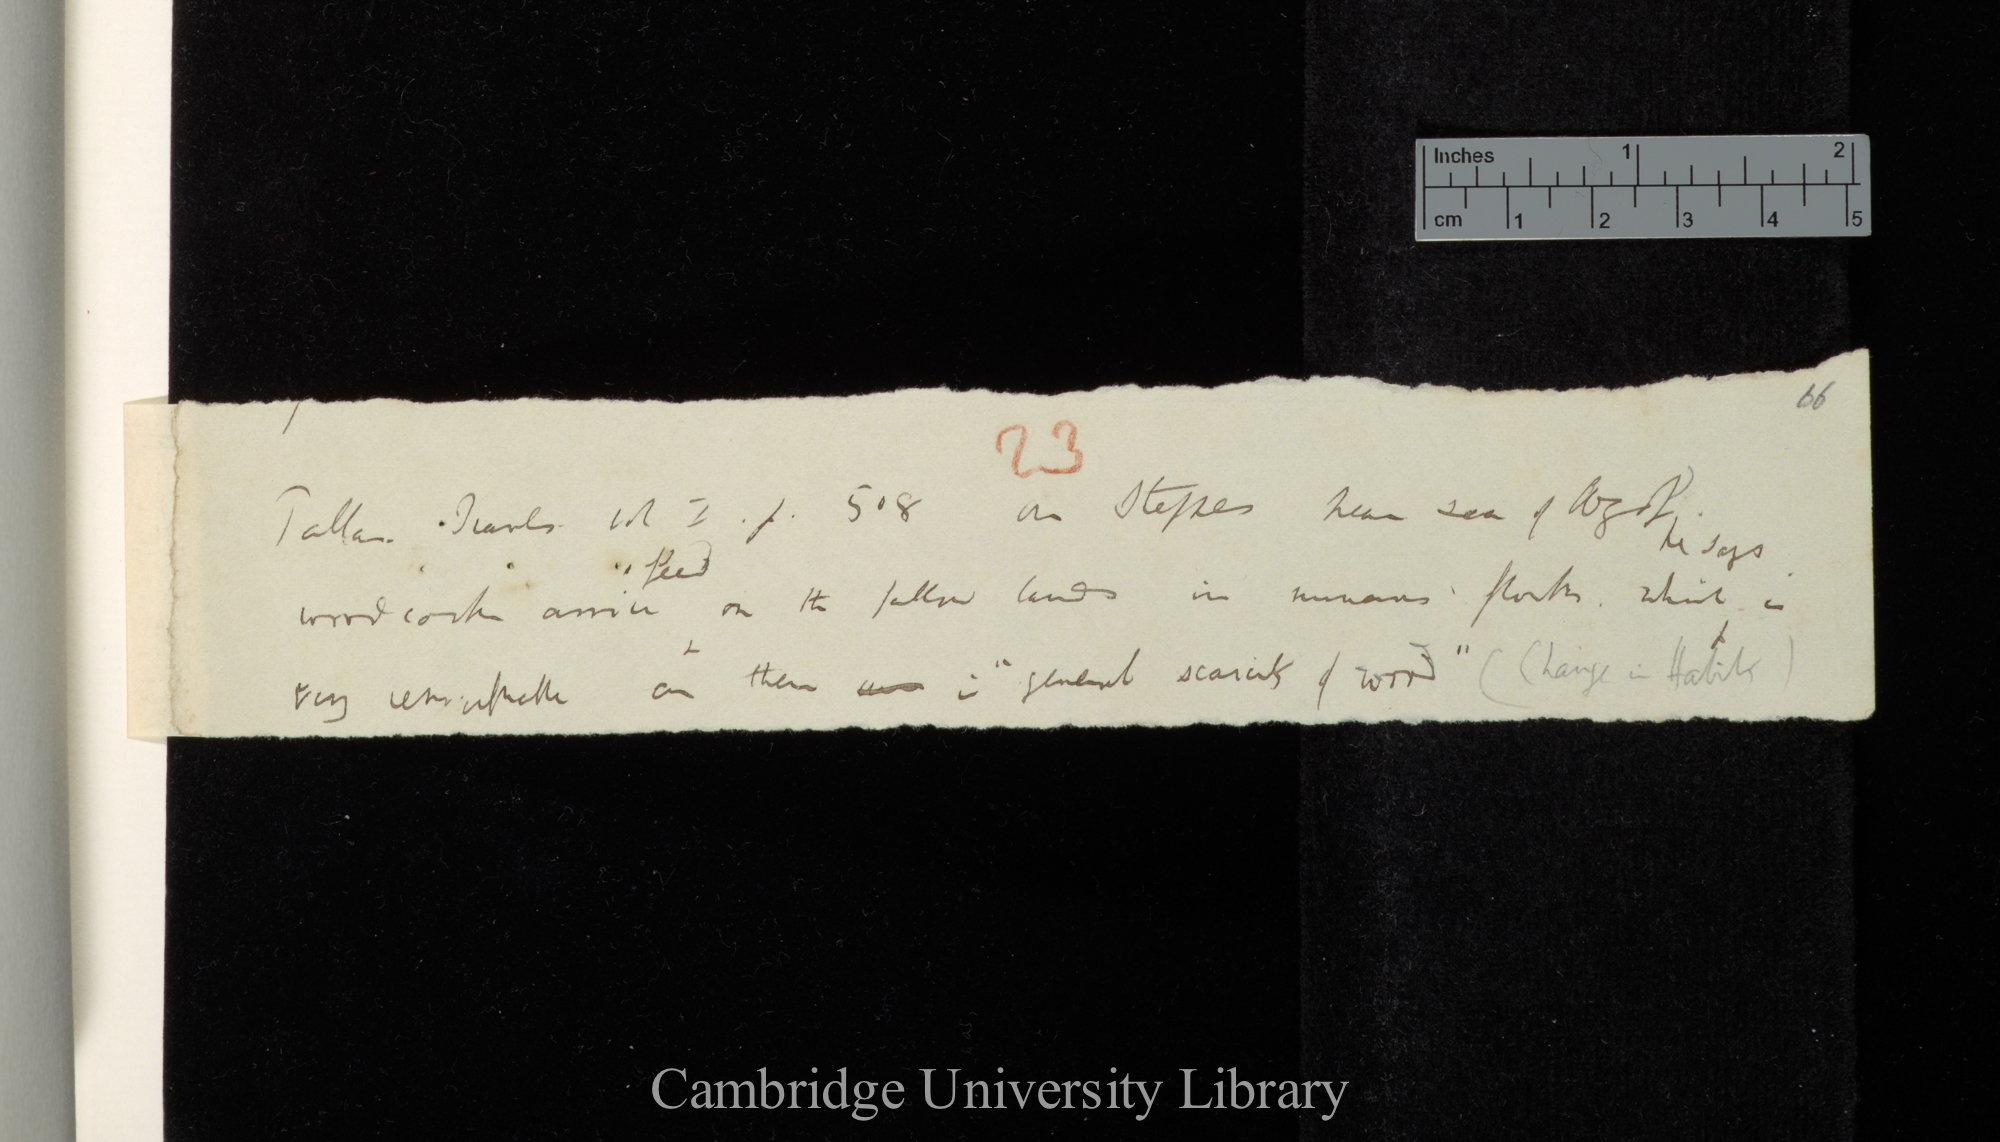 66
23
Pallas. Travels vol I. p. 508 on Steppes near sea of Azof.
he says
woodcocks arrive "feed on the fallow lands in numerous flocks. which is
very remarkable as there is "general scarcity of wood" (Change in Habits)
Inches 1 2
cm 1 2 3 4 5
Cambridge University Library